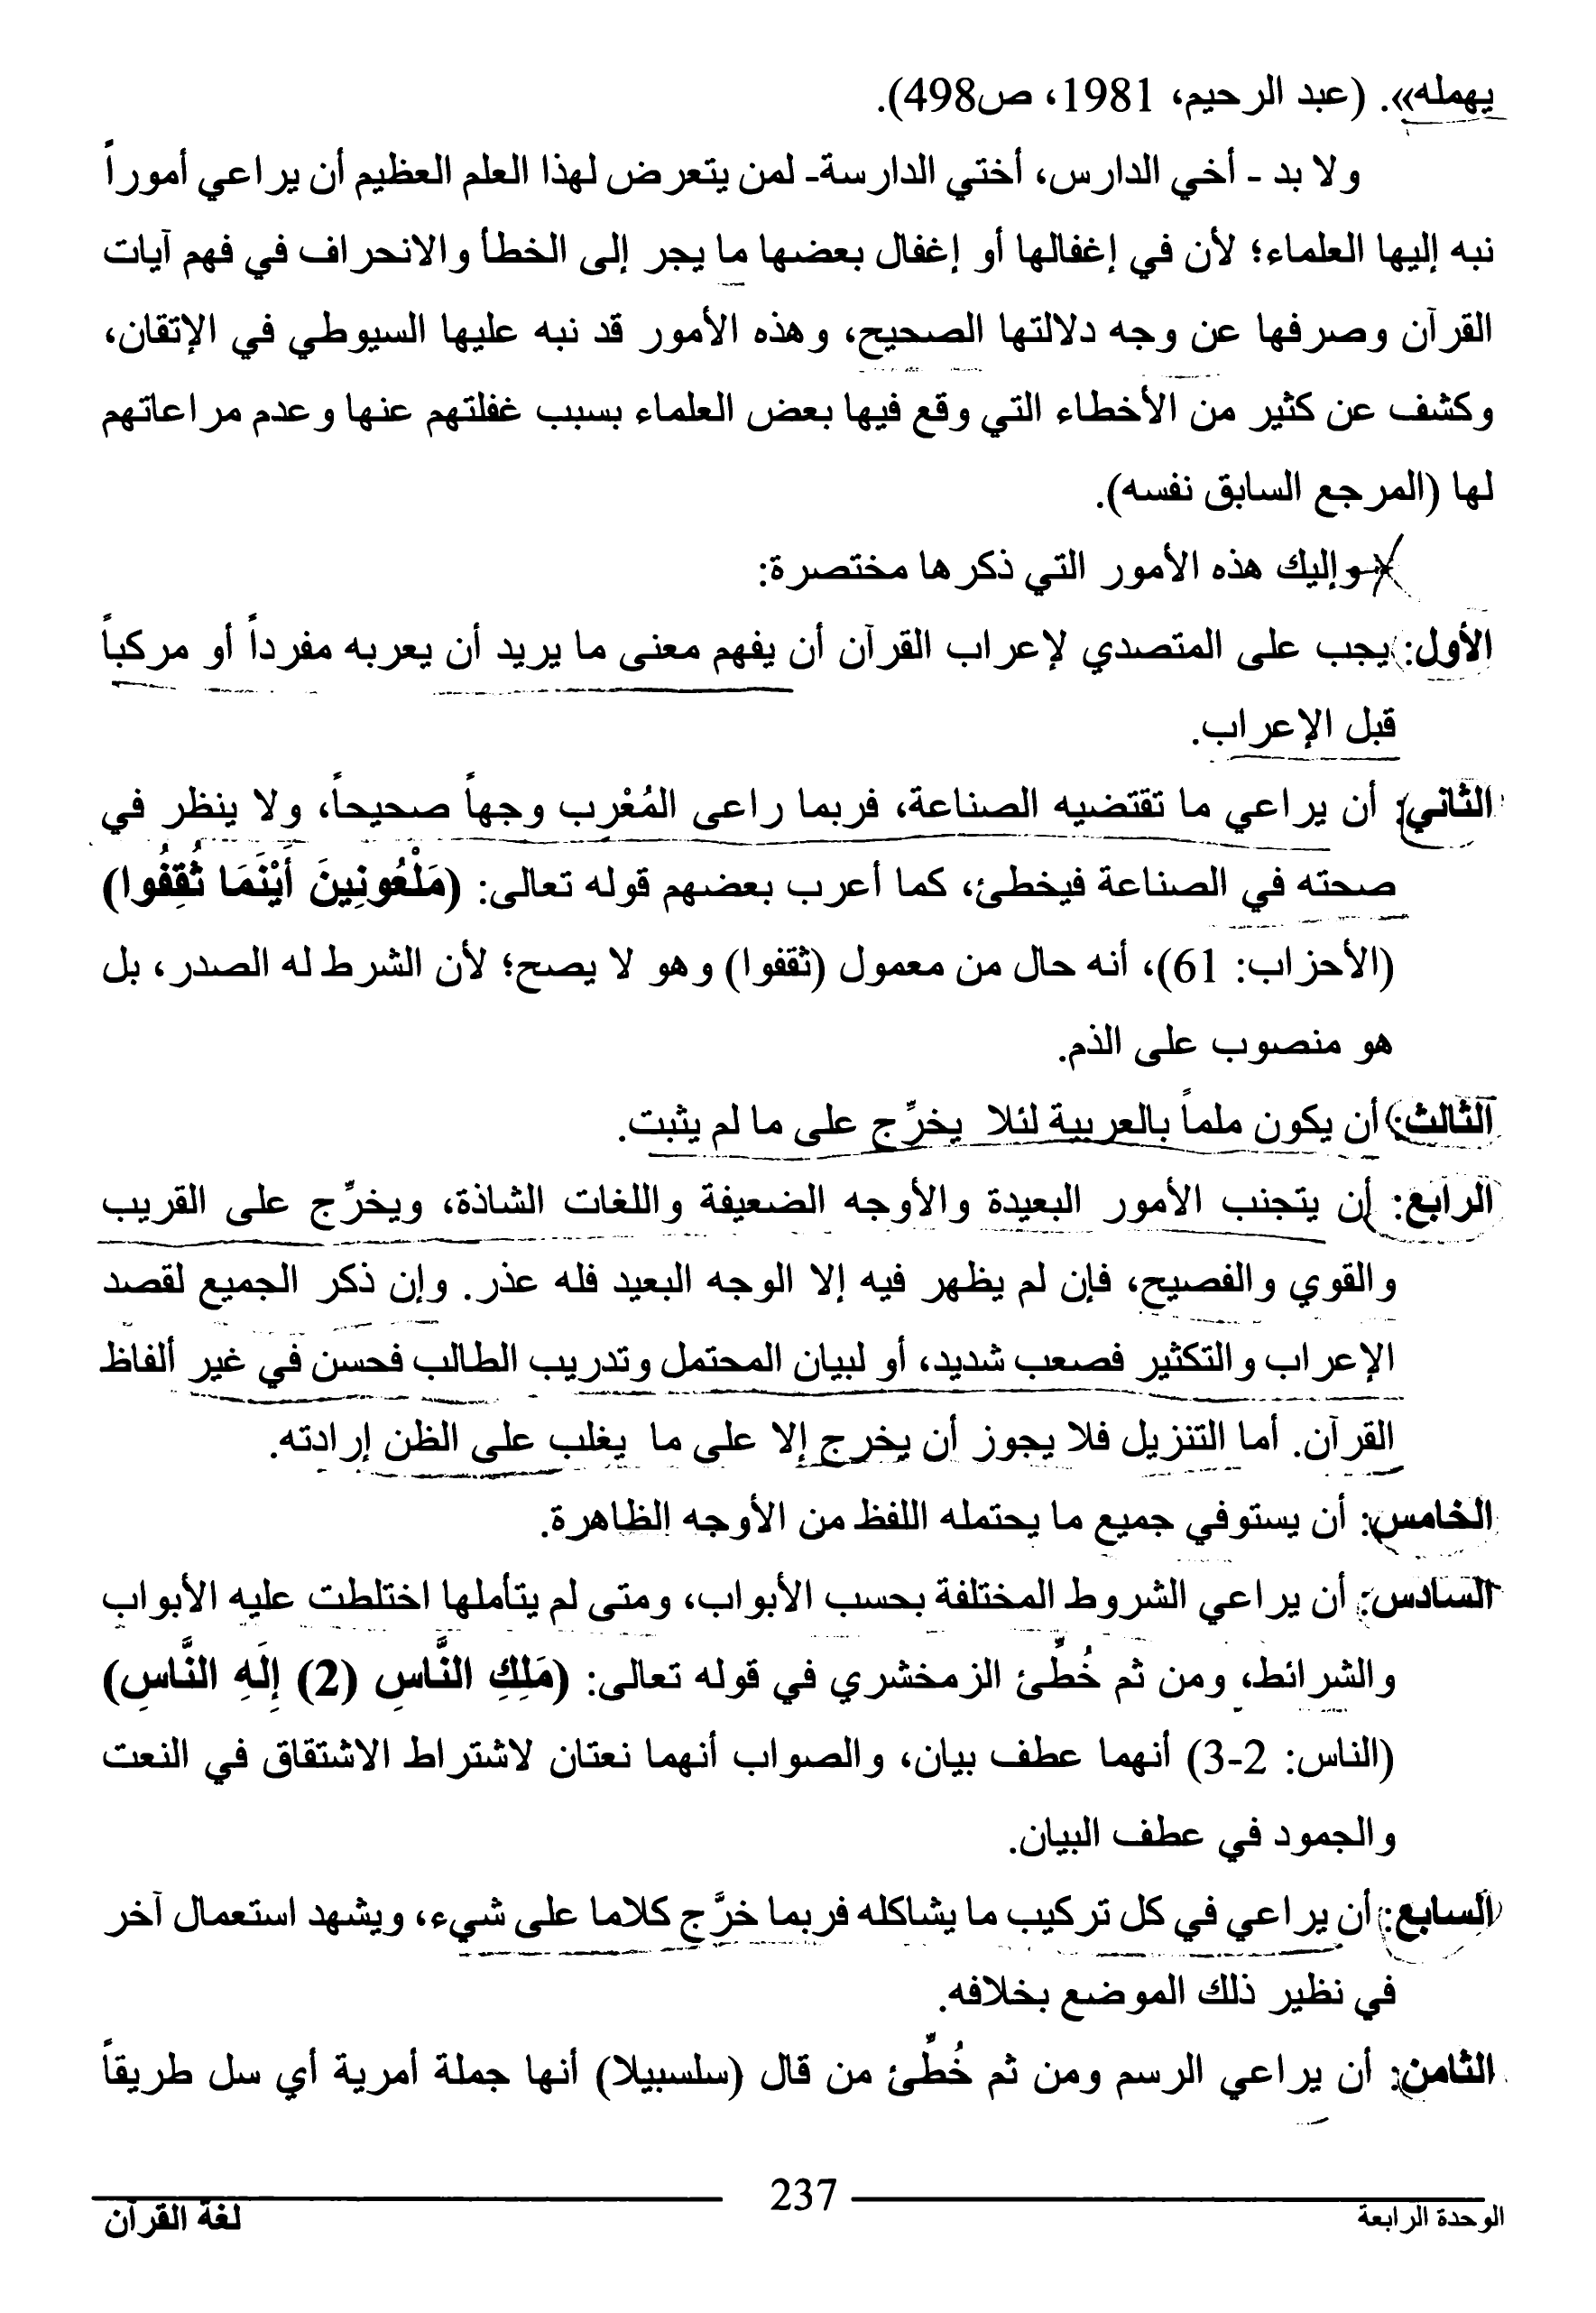 يهمله». (عبد الرحيم، 1981، ص498).
ولا بد - أخي الدارس، أختي الدارسة- لمن يتعرض لهذا العلم العظيم أن يراعي أموراً
نبه إليها العلماء؛ لأن في إغفالها أو إغفال بعضها ما يجر إلى الخطأ والانحراف في فهم آيات
القرآن وصرفها عن وجه دلالتها الصحيح، وهذه الأمور قد نبه عليها السيوطي في الإتقان،
وكشف عن كثير من الأخطاء التي وقع فيها بعض العلماء بسبب غفلتهم عنها وعدم مراعاتهم
لها (المرجع السابق نفسه).
وإليك هذه الأمور التي ذكرها مختصرة:
الأول: يجب على المتصدي لإعراب القرآن أن يفهم معنى ما يريد أن يعربه مفرداً أو مركباً
قبل الإعراب.
الثاني: أن يراعي ما تقتضيه الصناعة، فربما راعى المُعْرِب وجهاً صحيحاً، ولا ينظر في
صحته في الصناعة فيخطئ، كما أعرب بعضهم قوله تعالى: (مَلْعُونِينَ أَيْنَمَا ثُقِفُوا)
(الأحزاب: 61)، أنه حال من معمول (ثقفوا) وهو لا يصح؛ لأن الشرط له الصدر، بل
هو منصوب على الذم.
الثالث: أن يكون ملماً بالعربية لئلا يخرِّج على ما لم يثبت.
الرابع: أن يتجنب الأمور البعيدة والأوجه الضعيفة واللغات الشاذة، ويخرِّج على القريب
والقوي والفصيح، فإن لم يظهر فيه إلا الوجه البعيد فله عذر. وإن ذكر الجميع لقصد
الإعراب والتكثير فصعب شديد، أو لبيان المحتمل وتدريب الطالب فحسن في غير ألفاظ
القرآن. أما التنزيل فلا يجوز أن يخرج إلا على ما يغلب على الظن إرادته.
الخامس: أن يستوفي جميع ما يحتمله اللفظ من الأوجه الظاهرة.
السادس: أن يراعي الشروط المختلفة بحسب الأبواب، ومتى لم يتأملها اختلطت عليه الأبواب
والشرائط، ومن ثم خُطِّئ الزمخشري في قوله تعالى: (مَلِكِ النَّاسِ (2) إِلَهِ النَّاسِ)
(الناس: 2-3) أنهما عطف بيان، والصواب أنهما نعتان لاشتراط الاشتقاق في النعت
والجمود في عطف البيان.
السابع: أن يراعي في كل تركيب ما يشاكله فربما خرَّج كلاما على شيء، ويشهد استعمال آخر
في نظير ذلك الموضع بخلافه.
الثامن: أن يراعي الرسم ومن ثم خُطِّئ من قال (سلسبيلا) أنها جملة أمرية أي سل طريقاً
237
الوحدة الرابعة
لغة القرآن